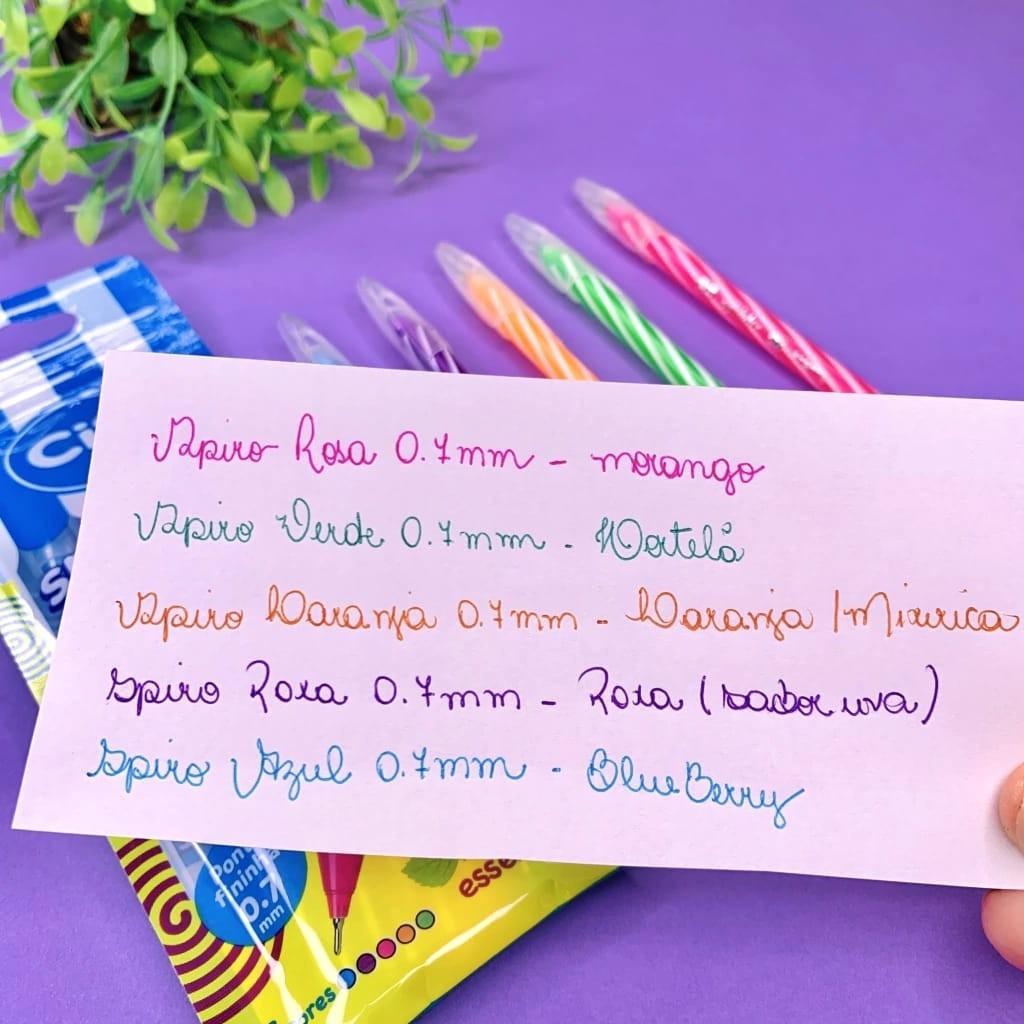 Spiro Rosa 0.7mm - morango
Spiro Verde 0.7mm - Hortelã
Spiro Laranja 0.7mm - Laranja /Mixirica
Spiro Roxa 0.7mm - Roxa (sabor uva)
Spiro Azul 0.7mm - BlueBerry
fininha
0.7
mm